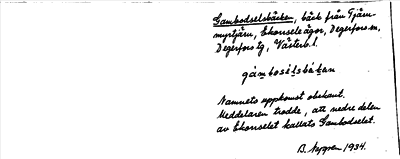 Gambodselsbäcken, bäck från Tjärn-
myrtjärn, Ekonsele ägor, Degerfors sn,
Degerfors tg, Västerb. l.
gámbosélsbákan
Namnets uppkomst obekant.
Meddelaren trodde, att nedre delen
av Ekonselet kallats Gambodselet.
B. Nygren 1934.